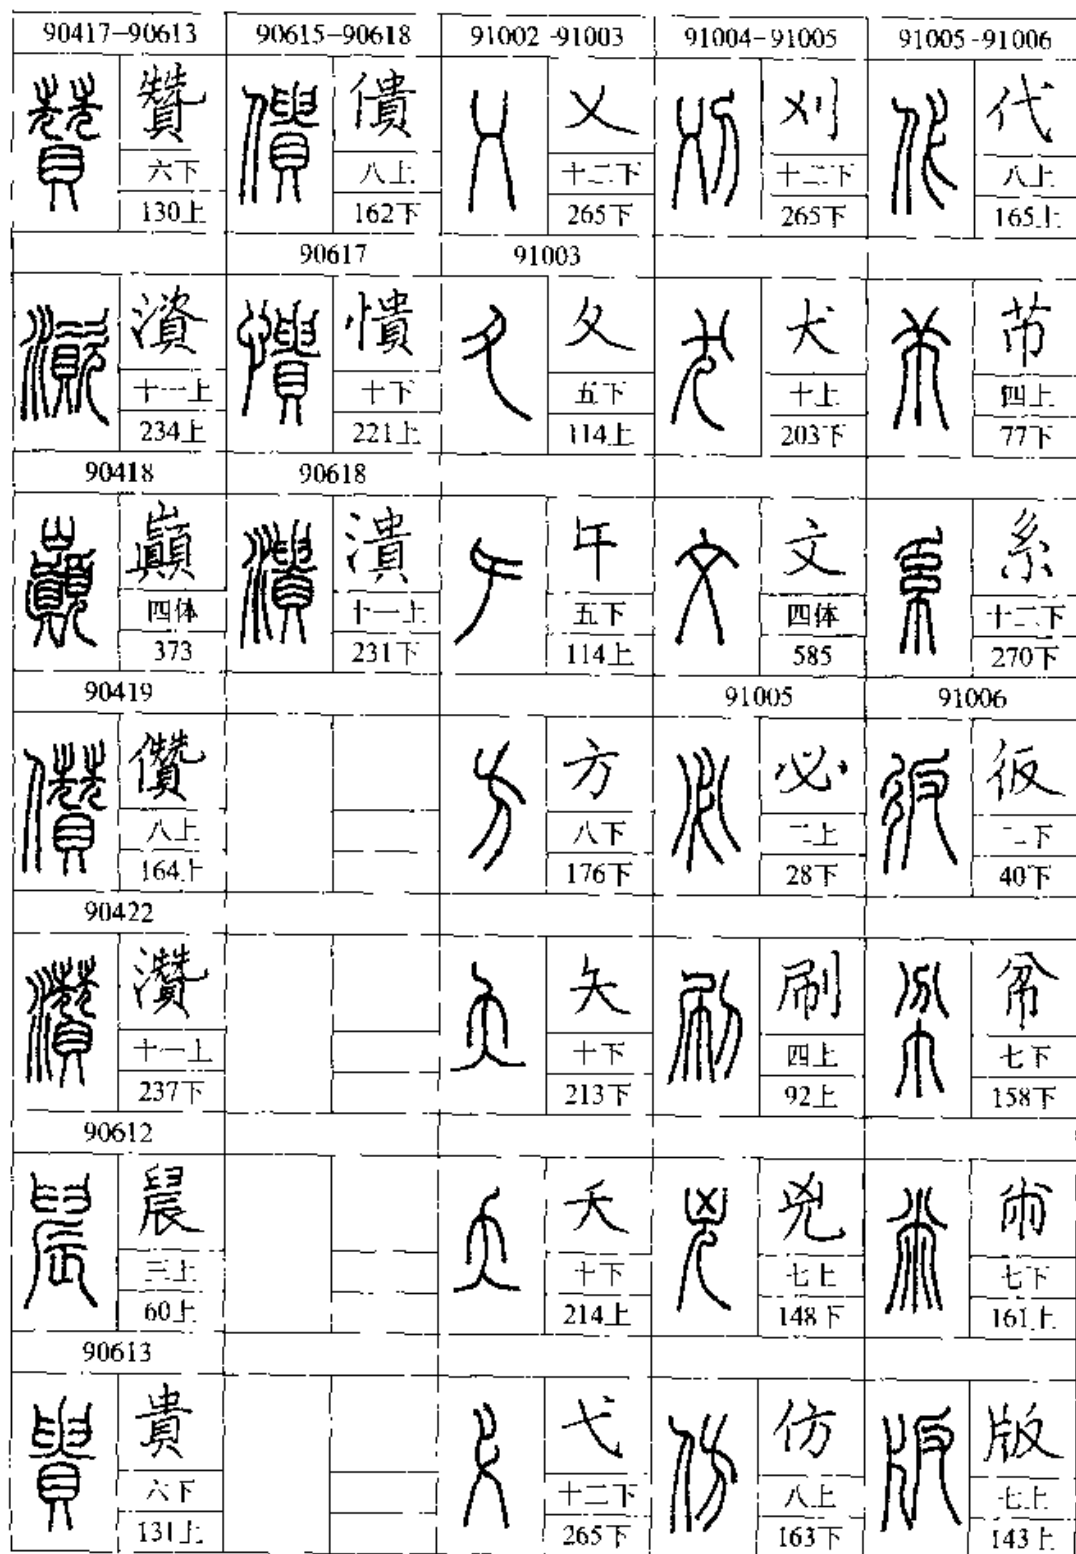 90417-90613
贊
六下
130上
十一上
234上
90418
巔
四体
373
90419
儹
八上
164上
90422
灒
十一上
237下
90612
䢅
三上
60上
90613
貴
六下
131上
90615-90618
僓
八上
162下
90617
憒
十下
221上
90618
潰
十一上
231下
91002-91003
乂
十二下
265下
91003
夂
五下
114上
五下
114上
方
八下
176下
夨
十下
213下
夭
十下
214上
弋
十二下
265下
91004-91005
刈
十二下
265下
犬
十上
203下
文
四体
585
91005
必
二上
28下
刷
四上
92上
兇
七上
148下
仿
八上
163下
91005-91006
代
八上
165上
芇
四上
77下
系
十二下
270下
91006
二下
40下
七下
158下
㡀
七下
161上
版
七上
143上